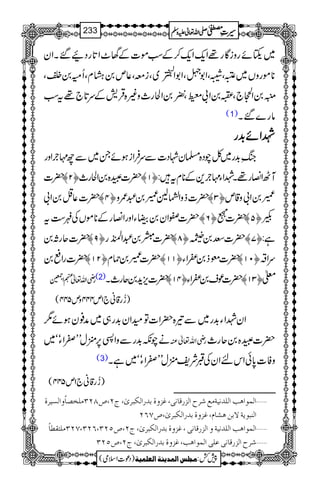 سیرتِ مصطفیٰ صلی اللہ تعالیٰ علیہ وسلم 233
میں یکتائے روزگار تھے ایک ایک کرکے سب موت کے گھاٹ اتار دیئے گئے۔ ان
ناموروں میں عتبہ، شیبہ، ابوجہل، ابوالبختری، زمعہ، عاص بن ہشام، اُمیہ بن خلف،
منبہ بن الحجاج، عقبہ بن ابی معیط، نضر بن الحارث وغیرہ قریش کے سرتاج تھے یہ سب
مارے گئے۔ (1)
شہدائے بدر
جنگ بدر میں کل چودہ مسلمان شہادت سے سرفراز ہوئے جن میں سے چھ مہاجر اور
آٹھ انصار تھے۔ شہداء مہاجرین کے نام یہ ہیں: ﴿۱﴾ حضرت عبیدہ بن الحارث ﴿۲﴾ حضرت
عمیر بن ابی وقاص ﴿۳﴾ حضرت ذوالشمالین عمیر بن عبد عمرو ﴿۴﴾ حضرت عاقل بن ابی
بکیر ﴿۵﴾ حضرت مہجع ﴿۶﴾ حضرت صفوان بن بیضاء اور انصار کے ناموں کی فہرست یہ
ہے: ﴿۷﴾ حضرت سعد بن خیثمہ ﴿۸﴾ حضرت مبشر بن عبدالمنذر ﴿۹﴾ حضرت حارثہ بن
سراقہ ﴿۱۰﴾ حضرت معوذ بن عفراء ﴿۱۱﴾ حضرت عمیر بن حمام ﴿۱۲﴾ حضرت رافع بن
معلیٰ ﴿۱۳﴾ حضرت عوف بن عفراء ﴿۱۴﴾ حضرت یزید بن حارث۔ (2) رضی اللہ تعالیٰ عنہم اجمعین
(زُرقانی ج۱ ص۴۴۴ و ص۴۴۵)
ان شہداء بدر میں سے تیرہ حضرات تو میدان بدر ہی میں مدفون ہوئے مگر
حضرت عبیدہ بن حارث رضی اللہ تعالیٰ عنہ نے چونکہ بدر سے واپسی پر منزل ”صفراء“ میں
وفات پائی اس لئے ان کی قبر شریف منزل ”صفراء“ میں ہے۔ (3)
(زُرقانی ج۱ ص۴۴۵)
......المواهب اللدنیةمع شرح الزرقانی، غزوة بدرالکبریٰ، ج۲،ص۳۲۸ملخصاًوالسیرة
النبویة لابن هشام، غزوة بدرالکبریٰ،ص۲۶۷
......المواهب اللدنیة و الزرقانی ، غزوة بدرالکبریٰ، ج۲، ص۳۲۵، ۳۲۶،۳۲۷ملتقطاً
......شرح الزرقانی علی المواهب، غزوة بدرالکبریٰ، ج۲،ص۳۲۵
پیش کش: مجلس المدینة العلمیة (دعوت اسلامی)